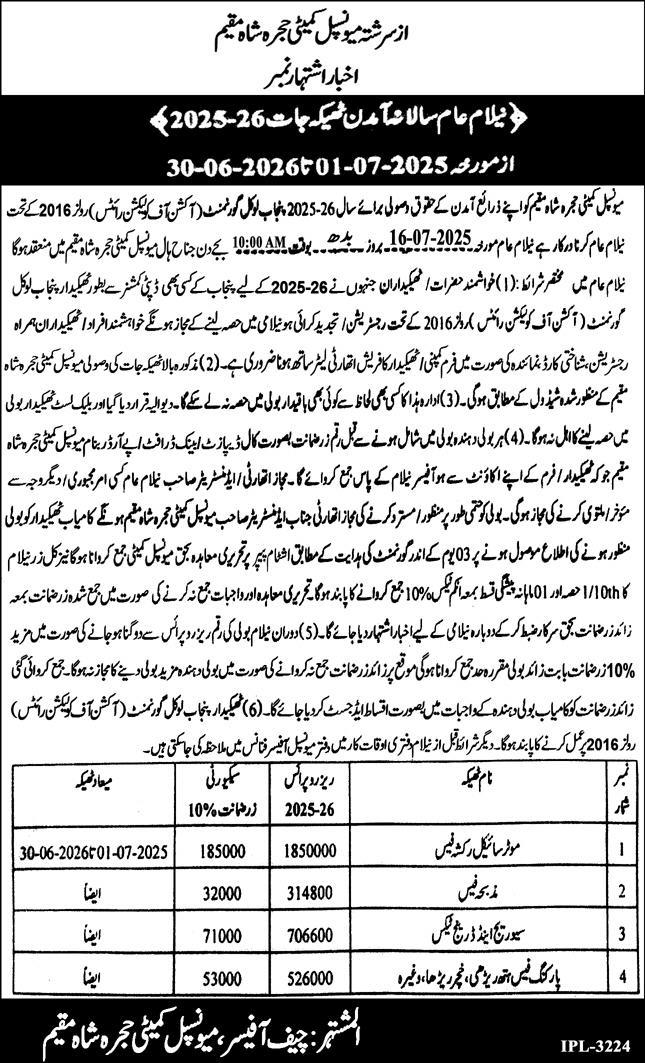 از سرشتہ میونسپل کمیٹی حجرہ شاہ مقیم
اخبار اشتہار نمبر
﴿نیلام عام سالانہ آمدن ٹھیکہ جات 26-2025﴾
از مورخہ 2025-07-01 تا 2026-06-30
میونسپل کمیٹی حجرہ شاہ مقیم کو اپنے ذرائع آمدن کے حقوق وصولی برائے سال 26-2025 پنجاب لوکل گورنمنٹ (آکشن آف کولیکشن رائٹس) رولز 2016 کے تحت
نیلام عام کرنا درکار ہے نیلام عام مورخہ 2025-07-16 بروز بدھ بوقت 10:00 AM بجے دن جناح ہال میونسپل کمیٹی حجرہ شاہ مقیم میں منعقد ہوگا
نیلام عام میں مختصر شرائط: (1) خواشمند حضرات/ ٹھیکیداران جنہوں نے 26-2025 کے لیے پنجاب کے کسی بھی ڈپٹی کمشنر سے بطور ٹھیکیدار پنجاب لوکل
گورنمنٹ (آکشن آف کولیکشن رائٹس) رولز 2016 کے تحت رجسٹریشن/ تجدید کرائی ہو نیلامی میں حصہ لینے کے مجاز ہونگے خواشمند افراد/ ٹھیکیداران ہمراہ
رجسٹریشن، شناختی کارڈ نمائندہ کی صورت میں فرم کمپنی/ ٹھیکیدار کا فریش اتھارٹی لیٹر ساتھ ہونا ضروری ہے۔ (2) مذکورہ بالا ٹھیکہ جات کی وصولی میونسپل کمیٹی حجرہ شاہ
مقیم کے منظور شدہ شیڈول کے مطابق ہوگی۔ (3) ادارہ ہذا کا کسی بھی لحاظ سے کوئی بھی باقیدار بولی میں حصہ نہ لے سکے گا۔ دیوالیہ قرار دیا گیا اور بلیک لسٹ ٹھیکیدار بولی
میں حصہ لینے کا اہل نہ ہوگا۔ (4) ہر بولی دہندہ بولی میں شامل ہونے سے قبل رقم زرضمانت بصورت کال ڈیپازٹ/ بینک ڈرافٹ/ پے آرڈر بنام میونسپل کمیٹی حجرہ شاہ
مقیم جو کہ ٹھیکیدار/ فرم کے اپنے اکاؤنٹ سے ہو آفیسر نیلام کے پاس جمع کروائے گا۔ مجاز اتھارٹی/ ایڈمنسٹریٹر صاحب نیلام عام کسی امر مجبوری/ دیگر وجہ سے
مؤخر/ ملتوی کرنے کی مجاز ہوگی۔ بولی کو حتمی طور پر منظور/ مسترد کرنے کی مجاز اتھارٹی جناب ایڈمنسٹریٹر صاحب میونسپل کمیٹی حجرہ شاہ مقیم ہونگے کامیاب ٹھیکیدار کو بولی
منظور ہونے کی اطلاع موصول ہونے پر 03 یوم کے اندر گورنمنٹ کی ہدایت کے مطابق اشٹام پیپر پر تحریری معاہدہ بحق میونسپل کمیٹی جمع کروانا ہوگا نیز کل زر نیلام
کا 1/10th حصہ اور 01 ماہانہ پیشگی قسط بمعہ انکم ٹیکس 10% جمع کروانے کا پابند ہوگا۔ تحریری معاہدہ اور واجبات جمع نہ کرنے کی صورت میں جمع شدہ زرضمانت بمعہ
زائد زرضمانت بحق سرکار ضبط کر کے دوبارہ نیلامی کے لیے اخبار اشتہار دیا جائے گا۔ (5) دوران نیلام بولی کی رقم ریزرو پرائس سے دو گنا ہو جانے کی صورت میں مزید
10% زرضمانت بابت زائد بولی مقررہ حد جمع کروانا ہوگی موقع پر زائد زرضمانت جمع نہ کروانے کی صورت میں بولی دہندہ مزید بولی دینے کا مجاز نہ ہوگا۔ جمع کروائی گئی
زائد زرضمانت کو کامیاب بولی دہندہ کے واجبات میں بصورت اقساط ایڈجسٹ کر دیا جائے گا۔ (6) ٹھیکیدار پنجاب لوکل گورنمنٹ (آکشن آف کولیکشن رائٹس)
رولز 2016 پر عمل کرنے کا پابند ہوگا۔ دیگر شرائط قبل از نیلام دفتری اوقات کار میں دفتر میونسپل آفیسر فنانس میں ملاحظہ کی جاسکتی ہیں۔
نمبر شمار | نام ٹھیکہ | ریزرو پرائس 2025-26 | سیکیورٹی زرضمانت 10% | میعاد ٹھیکہ
1 | موٹر سائیکل رکشہ فیس | 1850000 | 185000 | 01-07-2025 تا 30-06-2026
2 | مذبحہ فیس | 314800 | 32000 | ایضاً
3 | سیوریج اینڈ ڈرینج ٹیکس | 706600 | 71000 | ایضاً
4 | پارکنگ فیس ہتھ ریڑھی، خچر ریڑھا، وغیرہ | 526000 | 53000 | ایضاً
المشتہر: چیف آفیسر، میونسپل کمیٹی حجرہ شاہ مقیم
IPL-3224